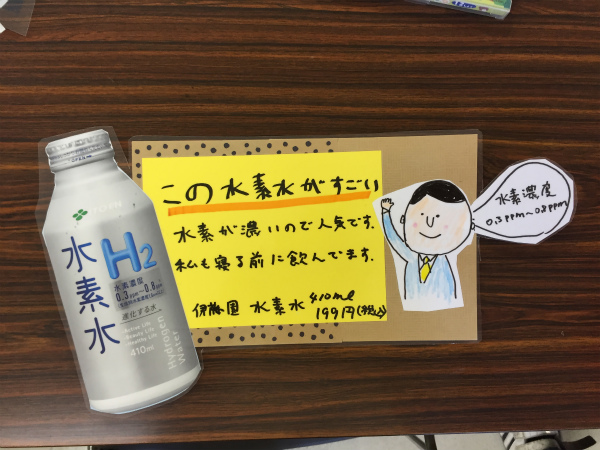 この水素水がすごい
水素が濃いので人気です。
私も寝る前に飲んでます。
伊藤園 水素水 410ml
199円(税込)
水素濃度
0.3ppm〜0.8ppm
ITOEN
H2
水素水
水素濃度
0.3ppm〜0.8ppm
進化する水
Active Life
Beauty Life
Healthy Life
410ml
Hydrogen
Water